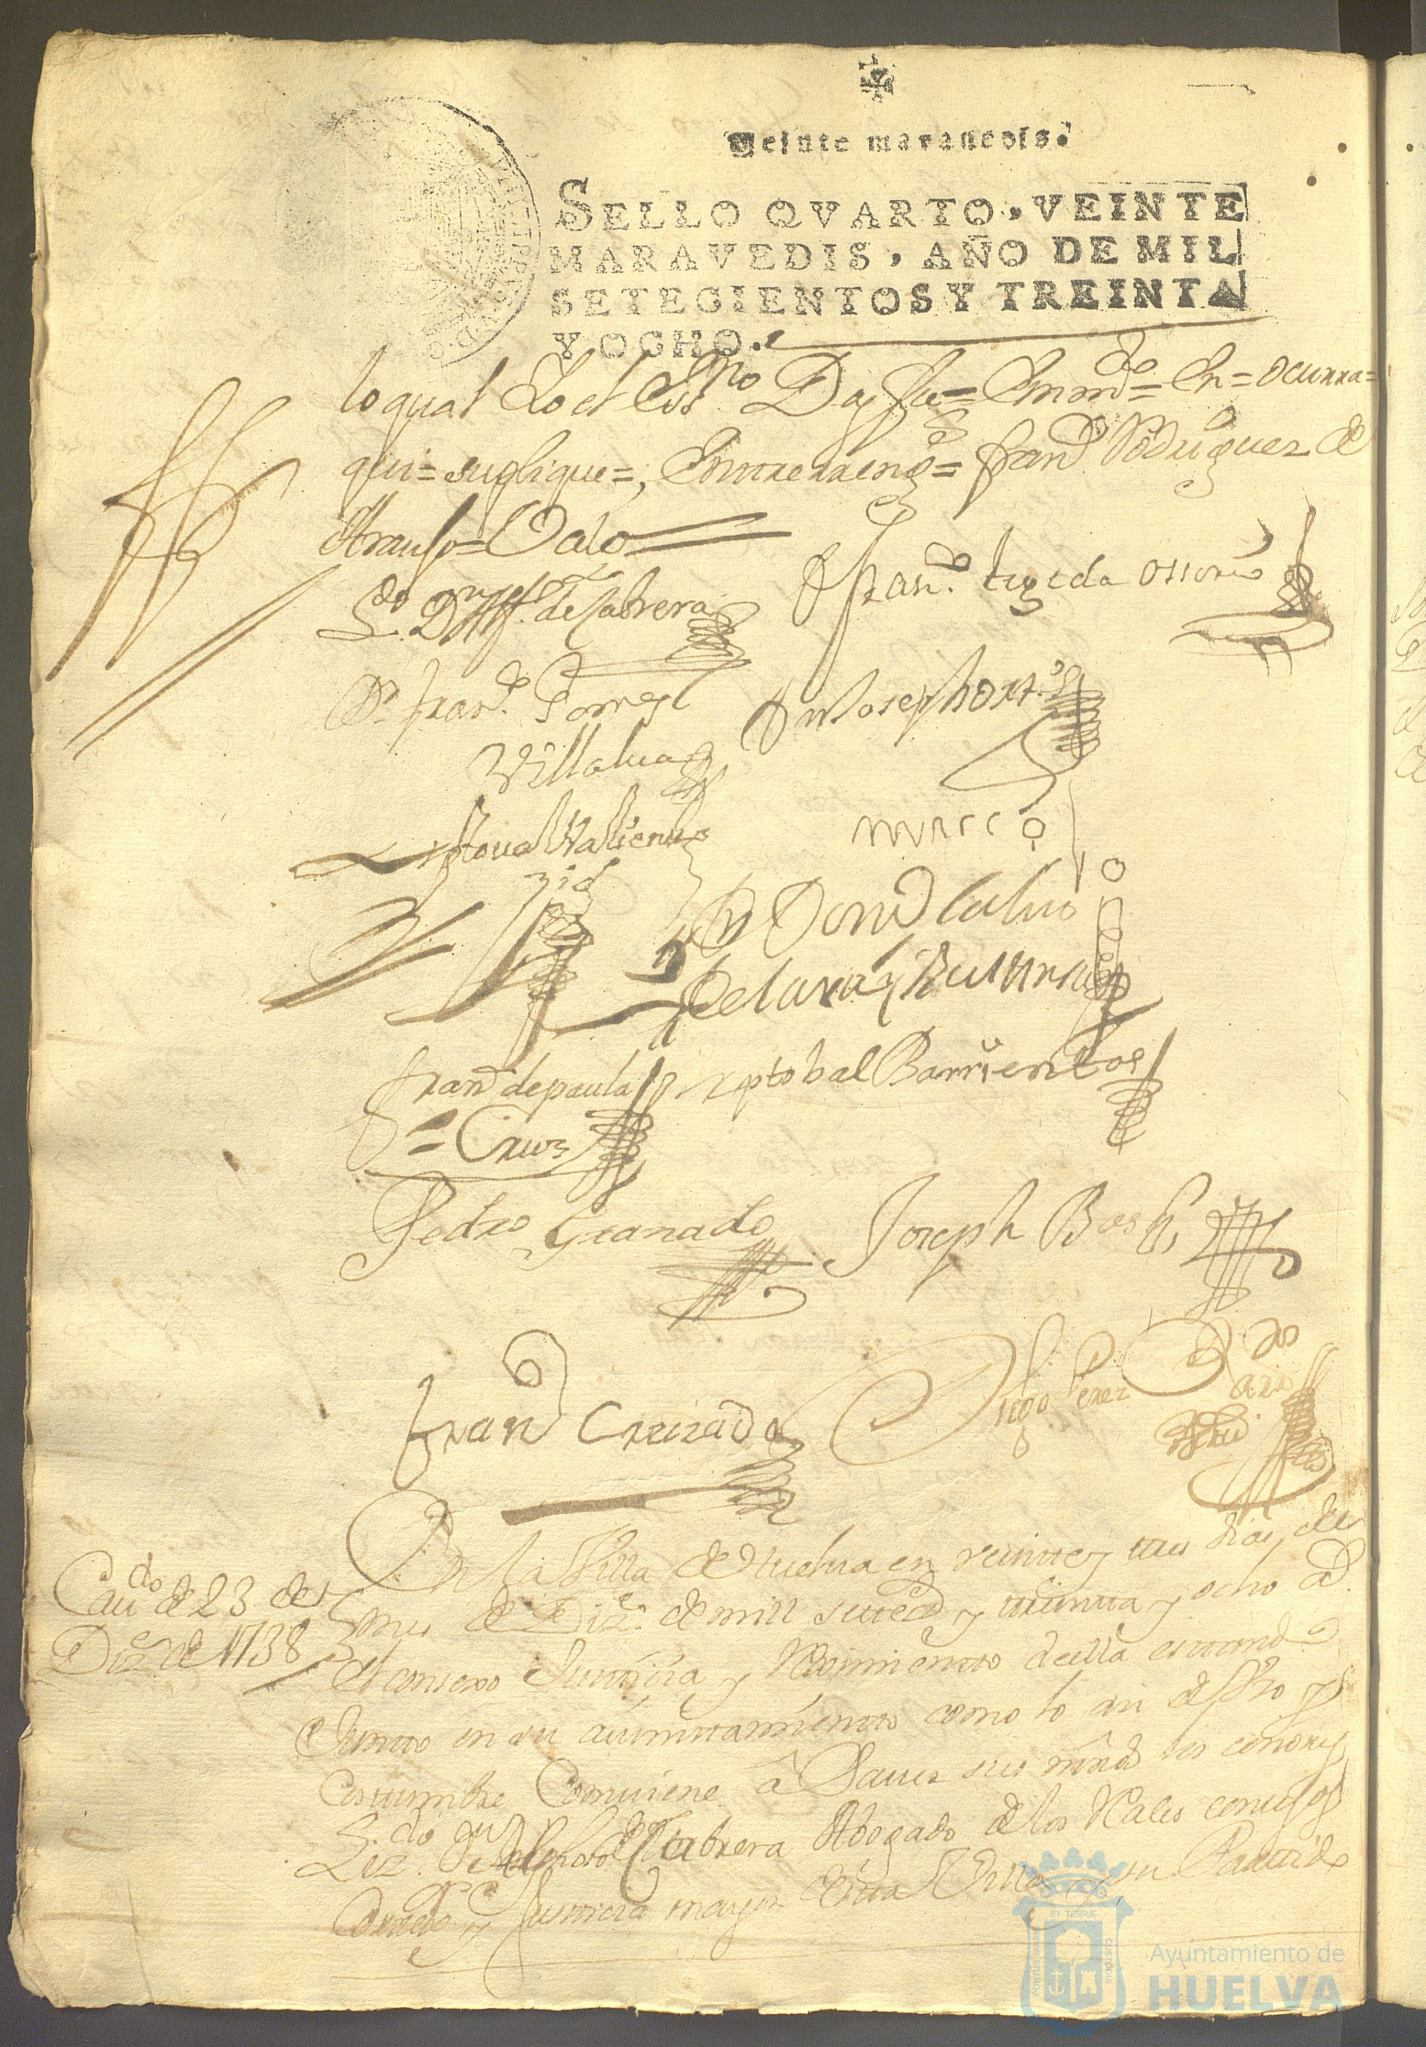 Veinte maravedis.
SELLO QVARTO, VEINTE
MARAVEDIS, AÑO DE MIL
SETECIENTOS Y TREINTA
Y OCHO.
lo qual Yo el Essno Doy fee = Enmdo = En = ocurra =
qui = suplique =, Entrereng = Franco Rodriguez de
Araujo = Vale
Ldo Dn de Cabrera
Franco tegeda Ossorio
Dn Franco Torres
Villalua
Dn Joseph ortiz
xptoual Valiente
MVRCCO
Dn Doming Calvo
de lara y Buitrn
Franco de paula
= Cruz
xptobal Barrientos
Pedro Granado
Joseph Bas
Franco Crizado
Diego Perez
Caudo de 23 de
Dize de 1738
En la Villa de Huelua en veintte y tres dias del
mes de Dize de mill settecs y treintta y ocho as
el consexo Justticia y Reximientto della esttando
Juntto en su aiunttamientto como lo an de vso y
costumbre Combiene â Sauer sus mrds los señores
Lizdo Dn de Cabrera Abogado de los Rales consejos
Correxor y Justicia mayor destta Villa y su Parttido
Ayuntamiento de
HUELVA